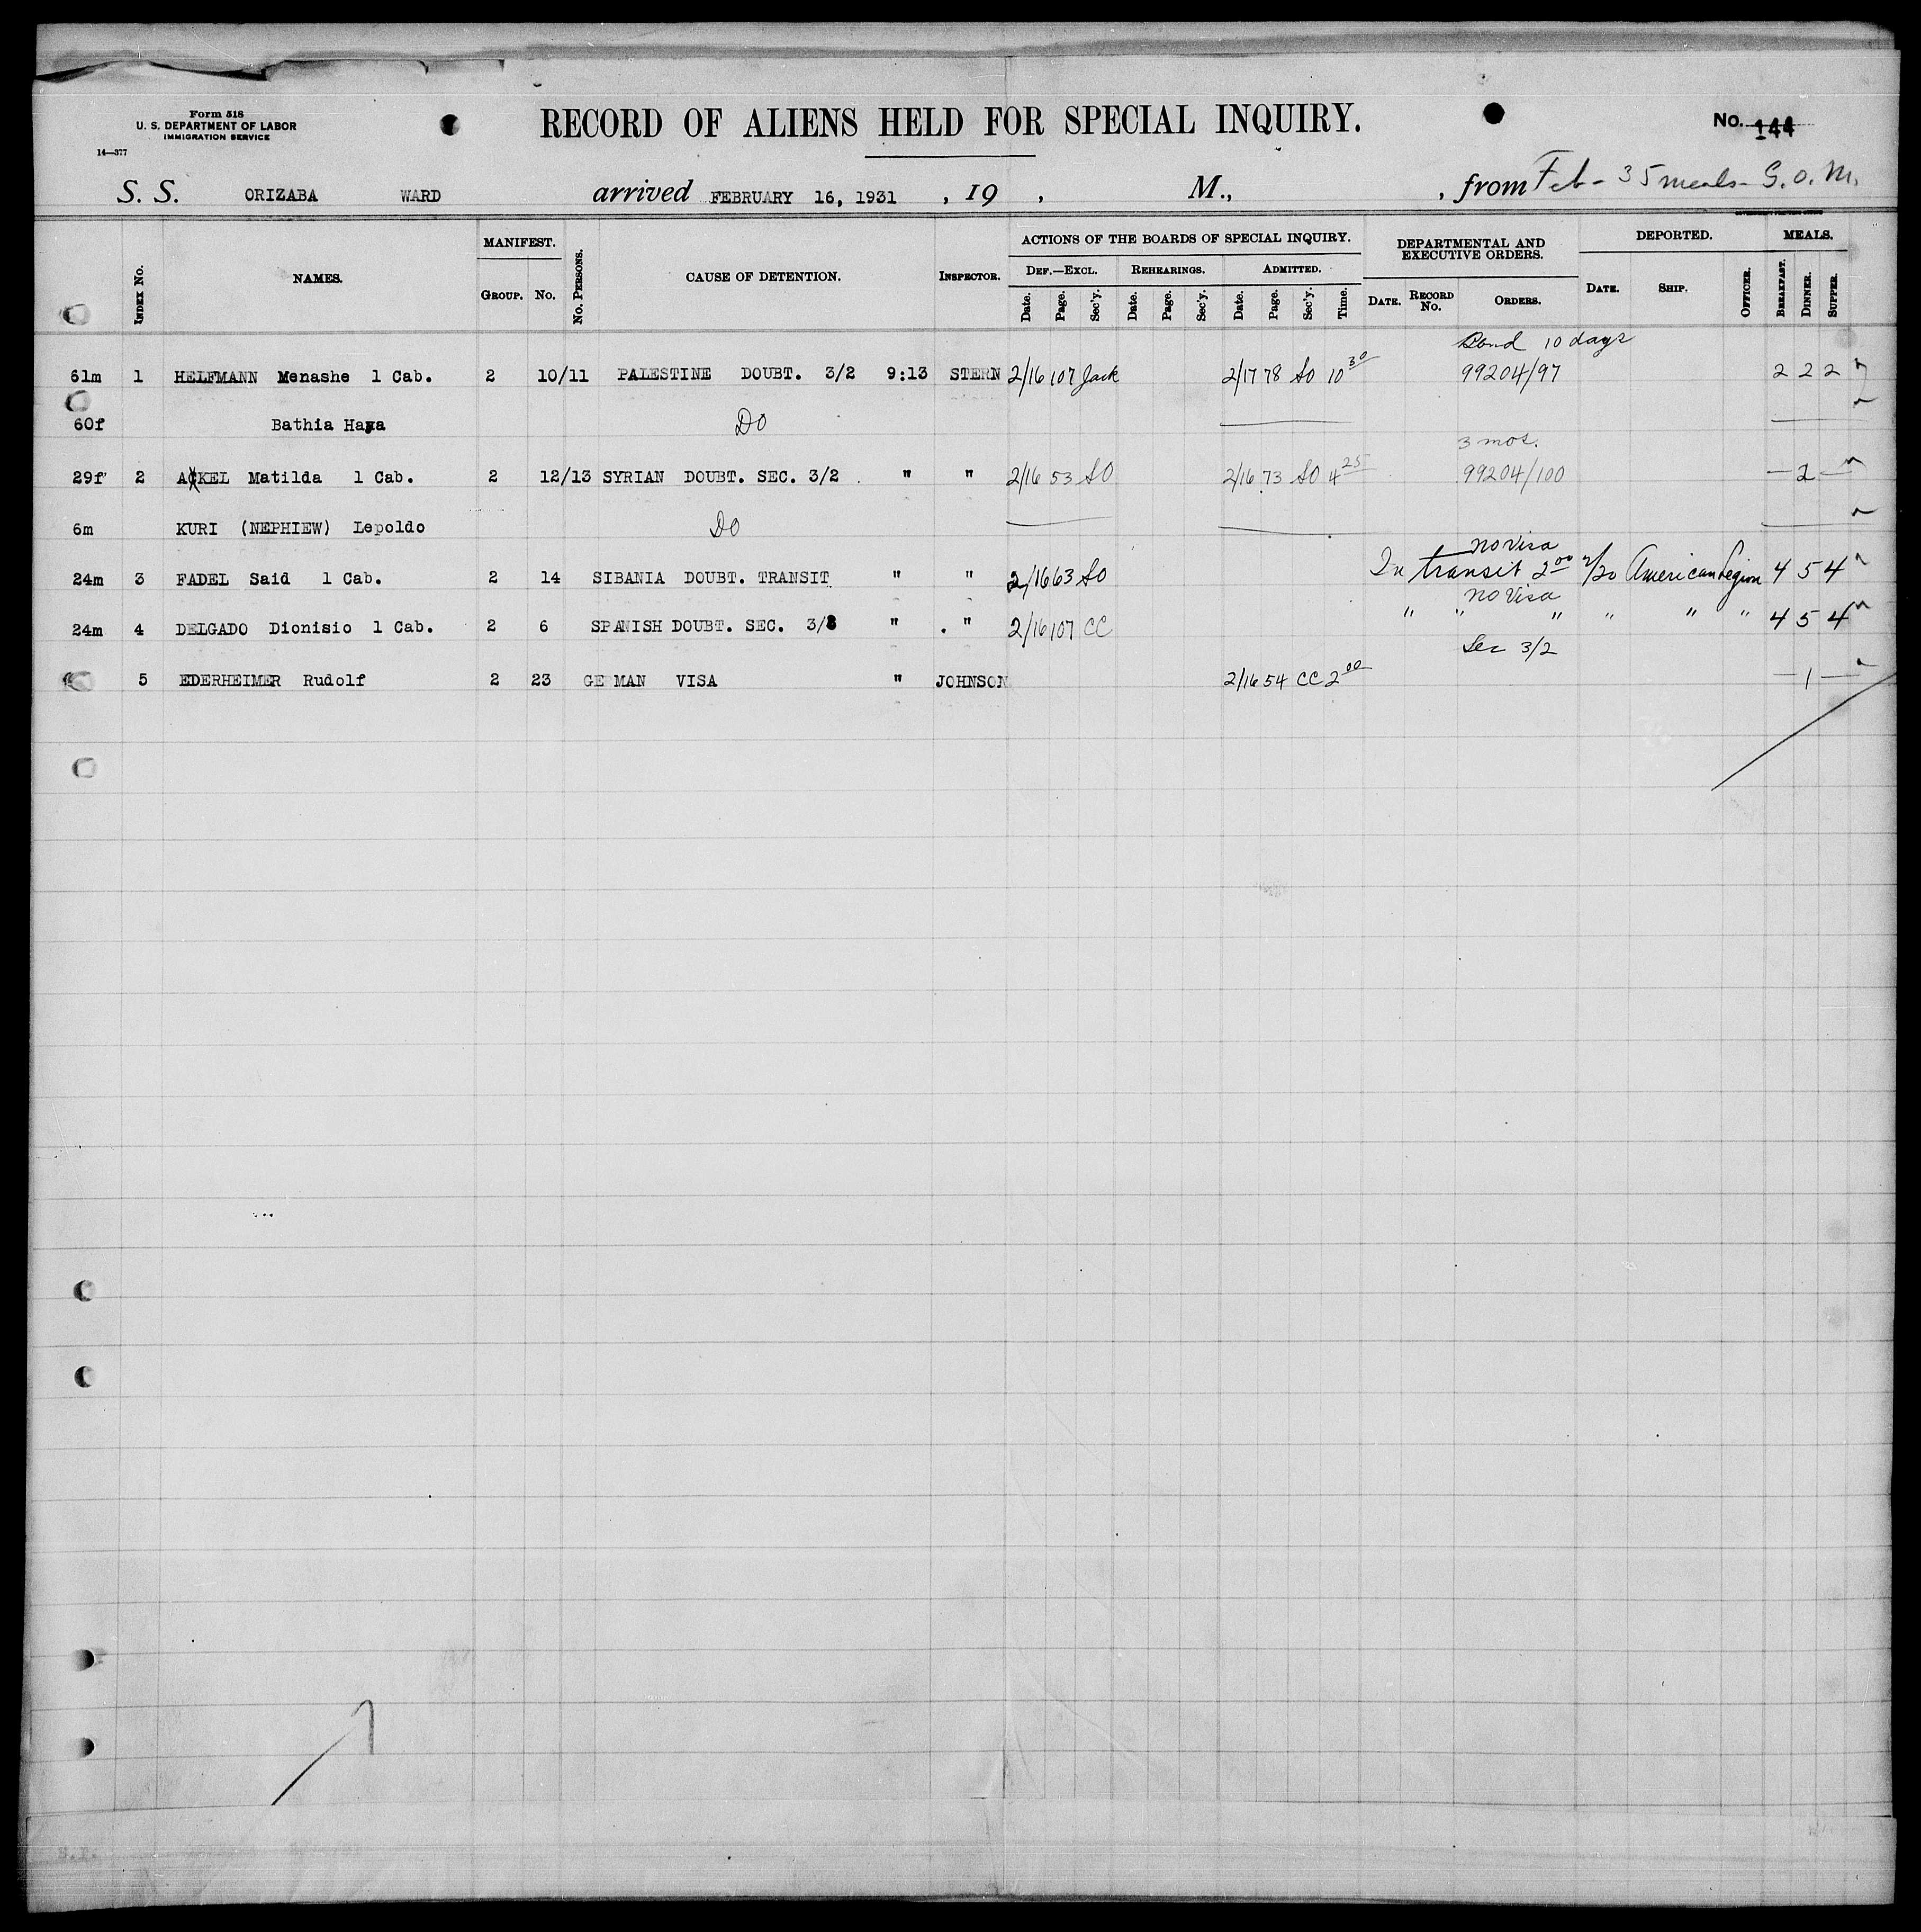 Form 518
U. S. DEPARTMENT OF LABOR
IMMIGRATION SERVICE
14—377
RECORD OF ALIENS HELD FOR SPECIAL INQUIRY.
No. 144
S. S. ORIZABA WARD arrived FEBRUARY 16, 1931 , 19 , M., , from Feb - 35 meals - G.O.M.
INDEX No. NAMES. MANIFEST. GROUP. No. No. PERSONS. CAUSE OF DETENTION. INSPECTOR. ACTIONS OF THE BOARDS OF SPECIAL INQUIRY. DEPARTMENTAL AND EXECUTIVE ORDERS. DEPORTED. MEALS.
DEF.—EXCL. REHEARINGS. ADMITTED.
Date. Page. Sec'y. Date. Page. Sec'y. Date. Page. Sec'y. Time. DATE. RECORD No. ORDERS. DATE. SHIP. OFFICER. BREAKFAST. DINNER. SUPPER.
Bond 10 days
61m 1 HELFMANN Menashe 1 Cab. 2 10/11 PALESTINE DOUBT. 3/2 9:13 STERN 2/16 107 Jack 2/17 78 SO 10 30 99204/97 2 2 2
60f Bathia Haya DO
3 mos.
29f 2 ACKEL Matilda 1 Cab. 2 12/13 SYRIAN DOUBT. SEC. 3/2 " " 2/16 53 SO 2/16 73 SO 4 25 99204/100 — 2 —
6m KURI (NEPHIEW) Lepoldo DO
no visa
24m 3 FADEL Said 1 Cab. 2 14 SIBANIA DOUBT. TRANSIT " " 2/16 63 SO In transit 2 00 2/20 American Legion 4 5 4
no visa
24m 4 DELGADO Dionisio 1 Cab. 2 6 SPANISH DOUBT. SEC. 3/2 " " 2/16 107 CC " " " " " " 4 5 4
Sec 3/2
5 EDERHEIMER Rudolf 2 23 GE MAN VISA " JOHNSON 2/16 54 CC 2 00 — 1 —